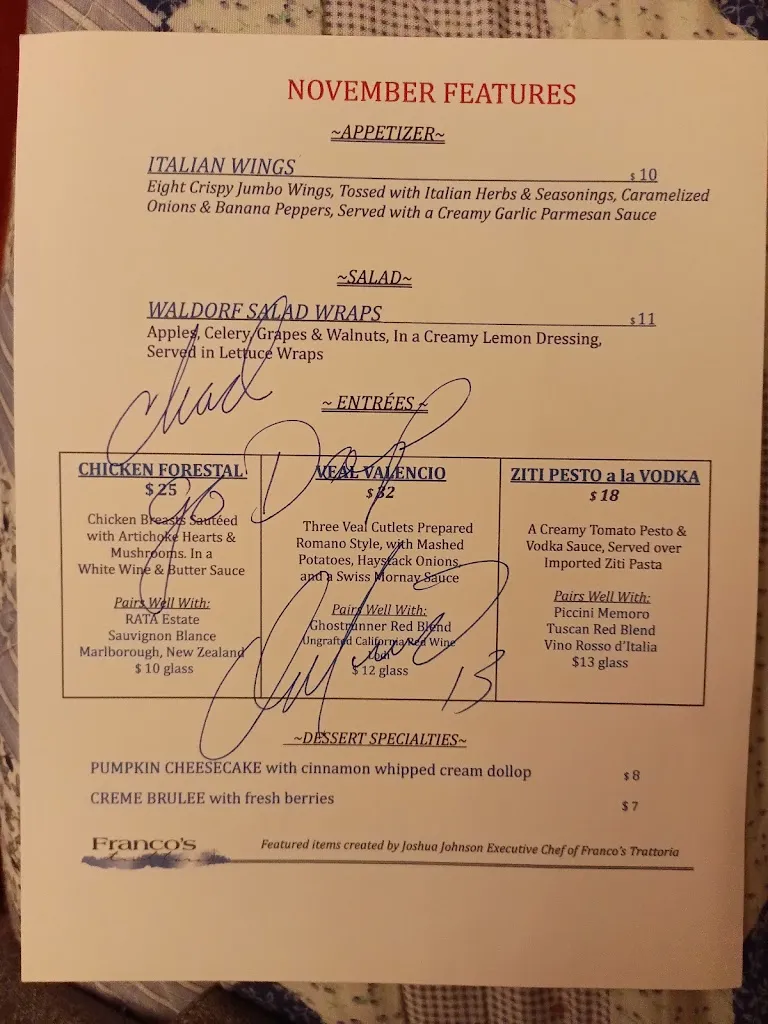 NOVEMBER FEATURES
~APPETIZER~
ITALIAN WINGS $ 10
Eight Crispy Jumbo Wings, Tossed with Italian Herbs & Seasonings, Caramelized
Onions & Banana Peppers, Served with a Creamy Garlic Parmesan Sauce
~SALAD~
WALDORF SALAD WRAPS $ 11
Apples, Celery, Grapes & Walnuts, In a Creamy Lemon Dressing,
Served in Lettuce Wraps
Chad
~ ENTRÉES ~
Go
CHICKEN FORESTAL
$ 25
Chicken Breasts Sautéed
with Artichoke Hearts &
Mushrooms. In a
White Wine & Butter Sauce
Pairs Well With:
RATA Estate
Sauvignon Blance
Marlborough, New Zealand
$ 10 glass
VEAL VALENCIO
$ 32
Three Veal Cutlets Prepared
Romano Style, with Mashed
Potatoes, Haystack Onions,
and a Swiss Mornay Sauce
Pairs Well With:
Ghostrunner Red Blend
Ungrafted California Red Wine
Lodi
$ 12 glass
13
ZITI PESTO a la VODKA
$ 18
A Creamy Tomato Pesto &
Vodka Sauce, Served over
Imported Ziti Pasta
Pairs Well With:
Piccini Memoro
Tuscan Red Blend
Vino Rosso d'Italia
$13 glass
~DESSERT SPECIALTIES~
PUMPKIN CHEESECAKE with cinnamon whipped cream dollop $ 8
CREME BRULEE with fresh berries $ 7
Franco's
Featured items created by Joshua Johnson Executive Chef of Franco's Trattoria